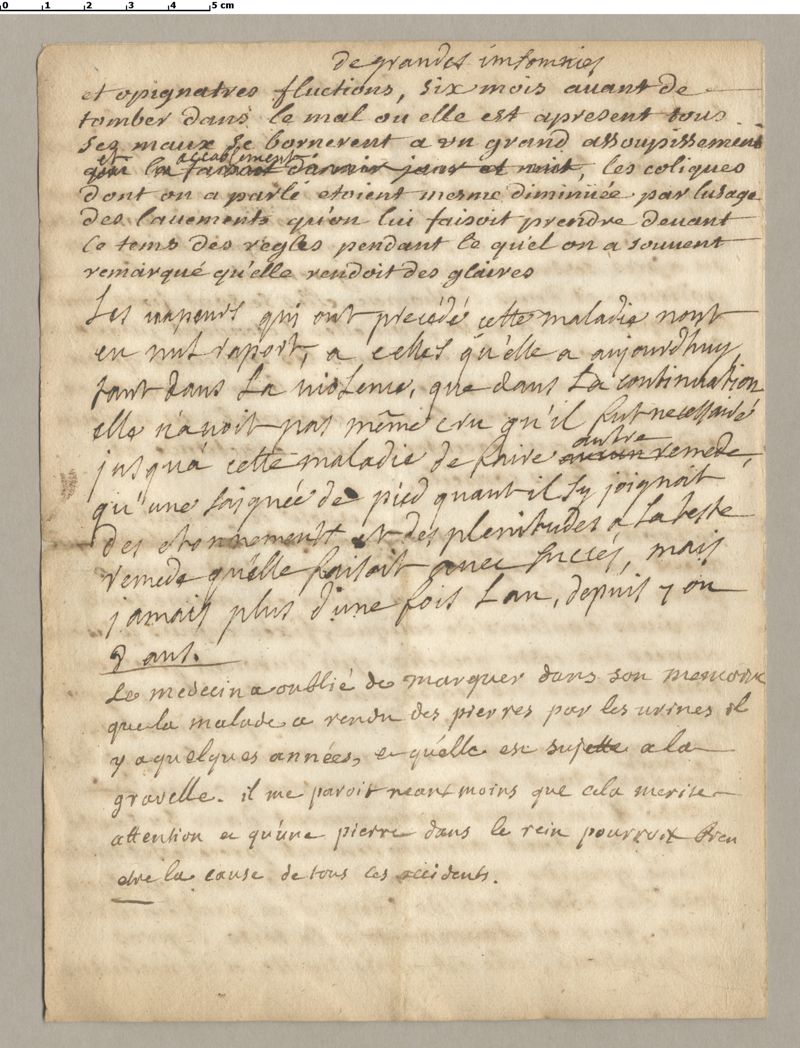 0 1 2 3 4 5 cm
de grandes insomnies
et opignatres fluctions, six mois auant de
tomber dans le mal ou elle est apresent tous
ses maux se bornerent a vn grand assoupissement
et accablement
qui la faisoit dormir jour et nuit, les coliques
dont on a parlé etoient mesme diminüée par lusage
des lauements qu'on lui faisoit prendre deuant
le tems des regles pendant le quel on a souuent
remarqué qu'elle rendoit des glaires
Les uapeurs qui ont precédé cette maladie nont
eu nul raport, a celles qu'elle a aujourdhuy
tant dans La uiolence, que dans La continuation
elle n'auoit pas même cru qu'il fut necessaire
jusqu'a cette maladie de faire aucun autre remede,
qu'une saignée de pied quant il sy joignoit
des etonnements et des plenitudes a La teste
remede qu'elle faisoit auec succés, mais
jamais plus d'une fois Lan, depuis 7 ou
8 ans.
Le medecin a oublié de marquer dans son memoire
que la malade a rendu des pierres par les urines il
y a quelques années, et quélle est sujette a la
gravelle. il me paroit neantmoins que cela merite
attention et qu'une pierre dans le rein pourroit bien
etre la cause de tous ces accidents.